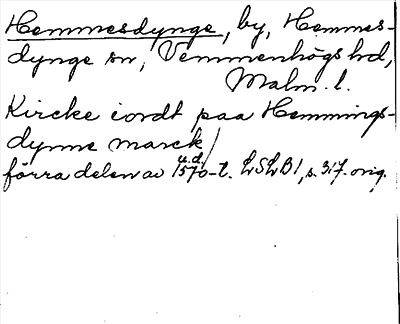 Hemmesdynge, by, Hemmes-
dynge sn, Vemmenhögs hd,
Malm. l.
Kircke iordt paa Hemmings-
dynne marck/
u.d.
förra delen av 1570-t. LSLB1, s. 317. orig.